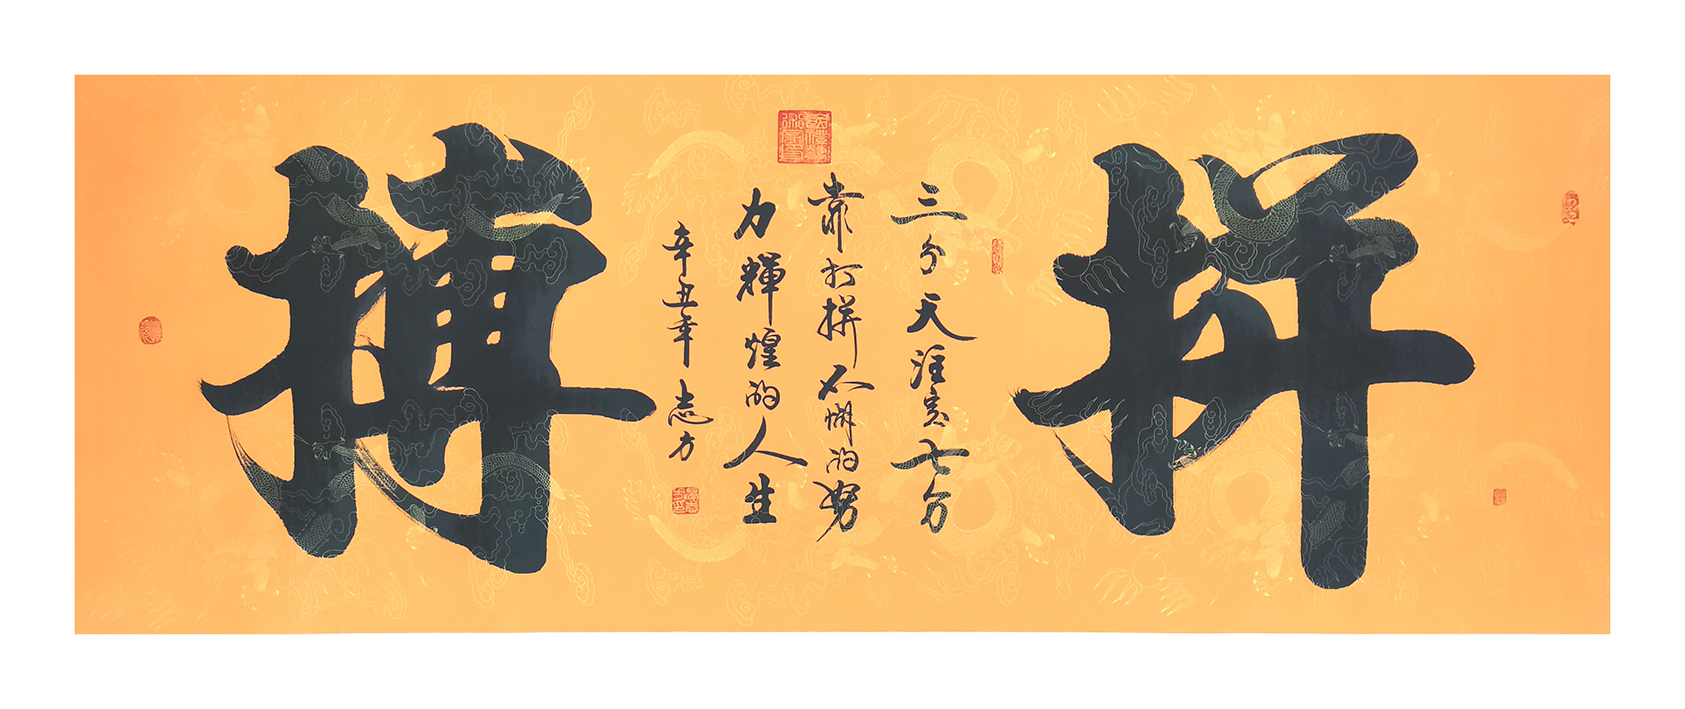 拼
三分天注定七分
靠打拼不懈的努
力輝煌的人生
辛丑年志方
搏